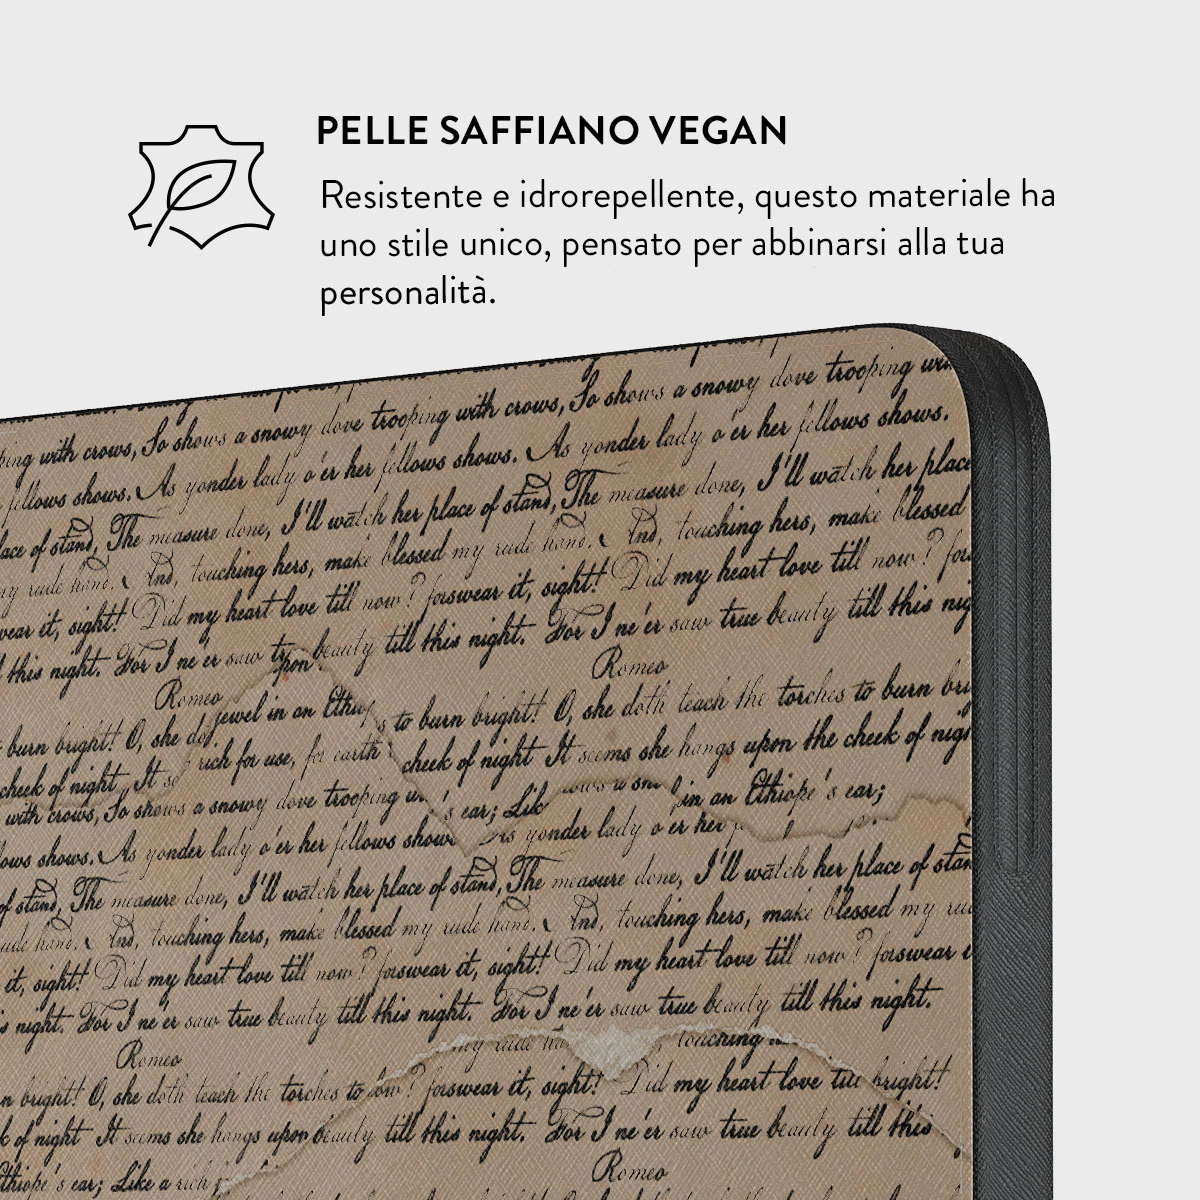 PELLE SAFFIANO VEGAN
Resistente e idrorepellente, questo materiale ha
uno stile unico, pensato per abbinarsi alla tua
personalità.
with crows, So shows a snowy dove trooping with crows, So shows a snowy dove trooping
fellows shows. As yonder lady o'er her fellows shows. As yonder lady o'er her fellows shows.
place of stand, The measure done, I'll watch her place of stand, The measure done, I'll watch her place
my rude hand. And, touching hers, make blessed my rude hand. And, touching hers, make blessed
it, sight! Did my heart love till now? forswear it, sight! Did my heart love till now?
this night. For I ne'er saw beauty till this night. For I ne'er saw true beauty till this
upon
Romeo Romeo
jewel in an
burn bright! O, she to burn bright! O, she doth teach the torches to burn
rich for use, for earth
cheek of night It cheek of night It seems she hangs upon the cheek of
with crows, So shows a snowy dove trooping 's ear; in an Ethiope's ear;
shows. As yonder lady o'er her fellows yonder lady o'er her
of stand, The measure done, I'll watch her place of stand, The measure done, I'll watch her place of
hand. And, touching hers, make blessed my rude hand. And, touching hers, make blessed my
it, sight! Did my heart love till now? forswear it, sight! Did my heart love till now? forswear
night. For I ne'er saw true beauty till this night. For I ne'er saw true beauty till this night.
my rude touching
Romeo
bright! O, she doth teach the torches to now? forswear it, sight! Did my heart love till bright!
of night It seems she hangs upon beauty till this night. For I ne'er saw true beauty till this
ear; Like a rich Romeo